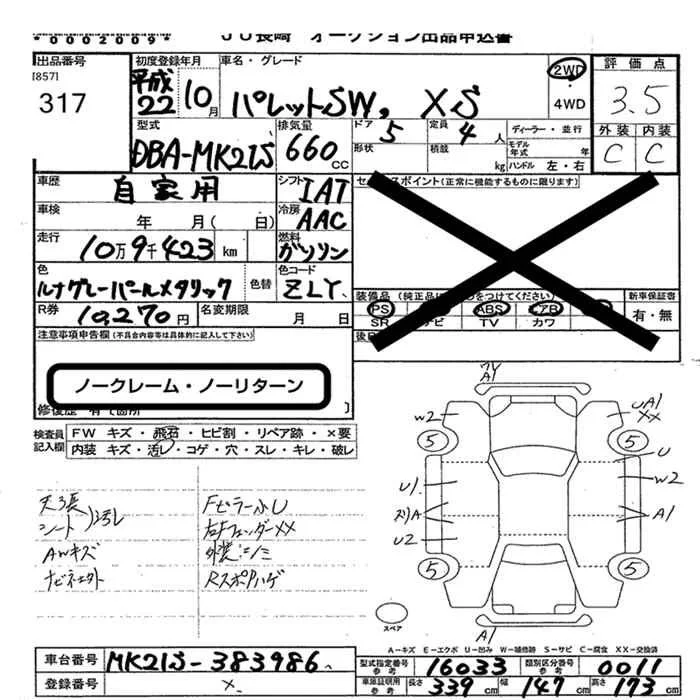 *0002009* JU長崎 オークション出品申込書
出品番号 初度登録年月 車名・グレード 評価点
[857] 平成
317 22 10月 パレットSW, XS 2WD・4WD 3.5
外装 内装
C C
型式 排気量 ドア 5 定員 4人 ディーラー・並行
DBA-MK21S 660CC 形状 積載 kg モデル年式 年
ハンドル 左・右
車歴 自家用 シフト IAT セールスポイント(正常に機能するものに限ります)
車検 年 月( 日) 冷房 AAC
走行 10万9千423km 燃料 ガソリン
色 ルナグレーパールメタリック 色替 色コード ZLY
装備品 新車保証書
PS ABS エアB 有・無
SR TV カワ
R券 10,270円 名変期限 月 日
注意事項申告欄(不具合内容等は具体的に記入して下さい)
ノークレーム・ノーリターン
検査員記入欄 FW キズ・飛石・ヒビ割・リペア跡・×要
内装 キズ・汚レ・コゲ・穴・スレ・キレ・破レ
天張
シート 汚レ
AWキズ
Fピラー小U
右Fフェンダー××
W2 A1 UA1 XX
5 5
U1 U W2
スリA A1
U2
5 5
A1
スペア
A-キズ E-エクボ U-凹み W-補修跡 S-サビ C-腐食 XX-交換済
車台番号 MK21S-383986
登録番号 ×
型式指定番号 参考 16033 類別区分番号 参考 0011
車庫証明用 参考 長さ 339cm 幅 147cm 高さ 173cm